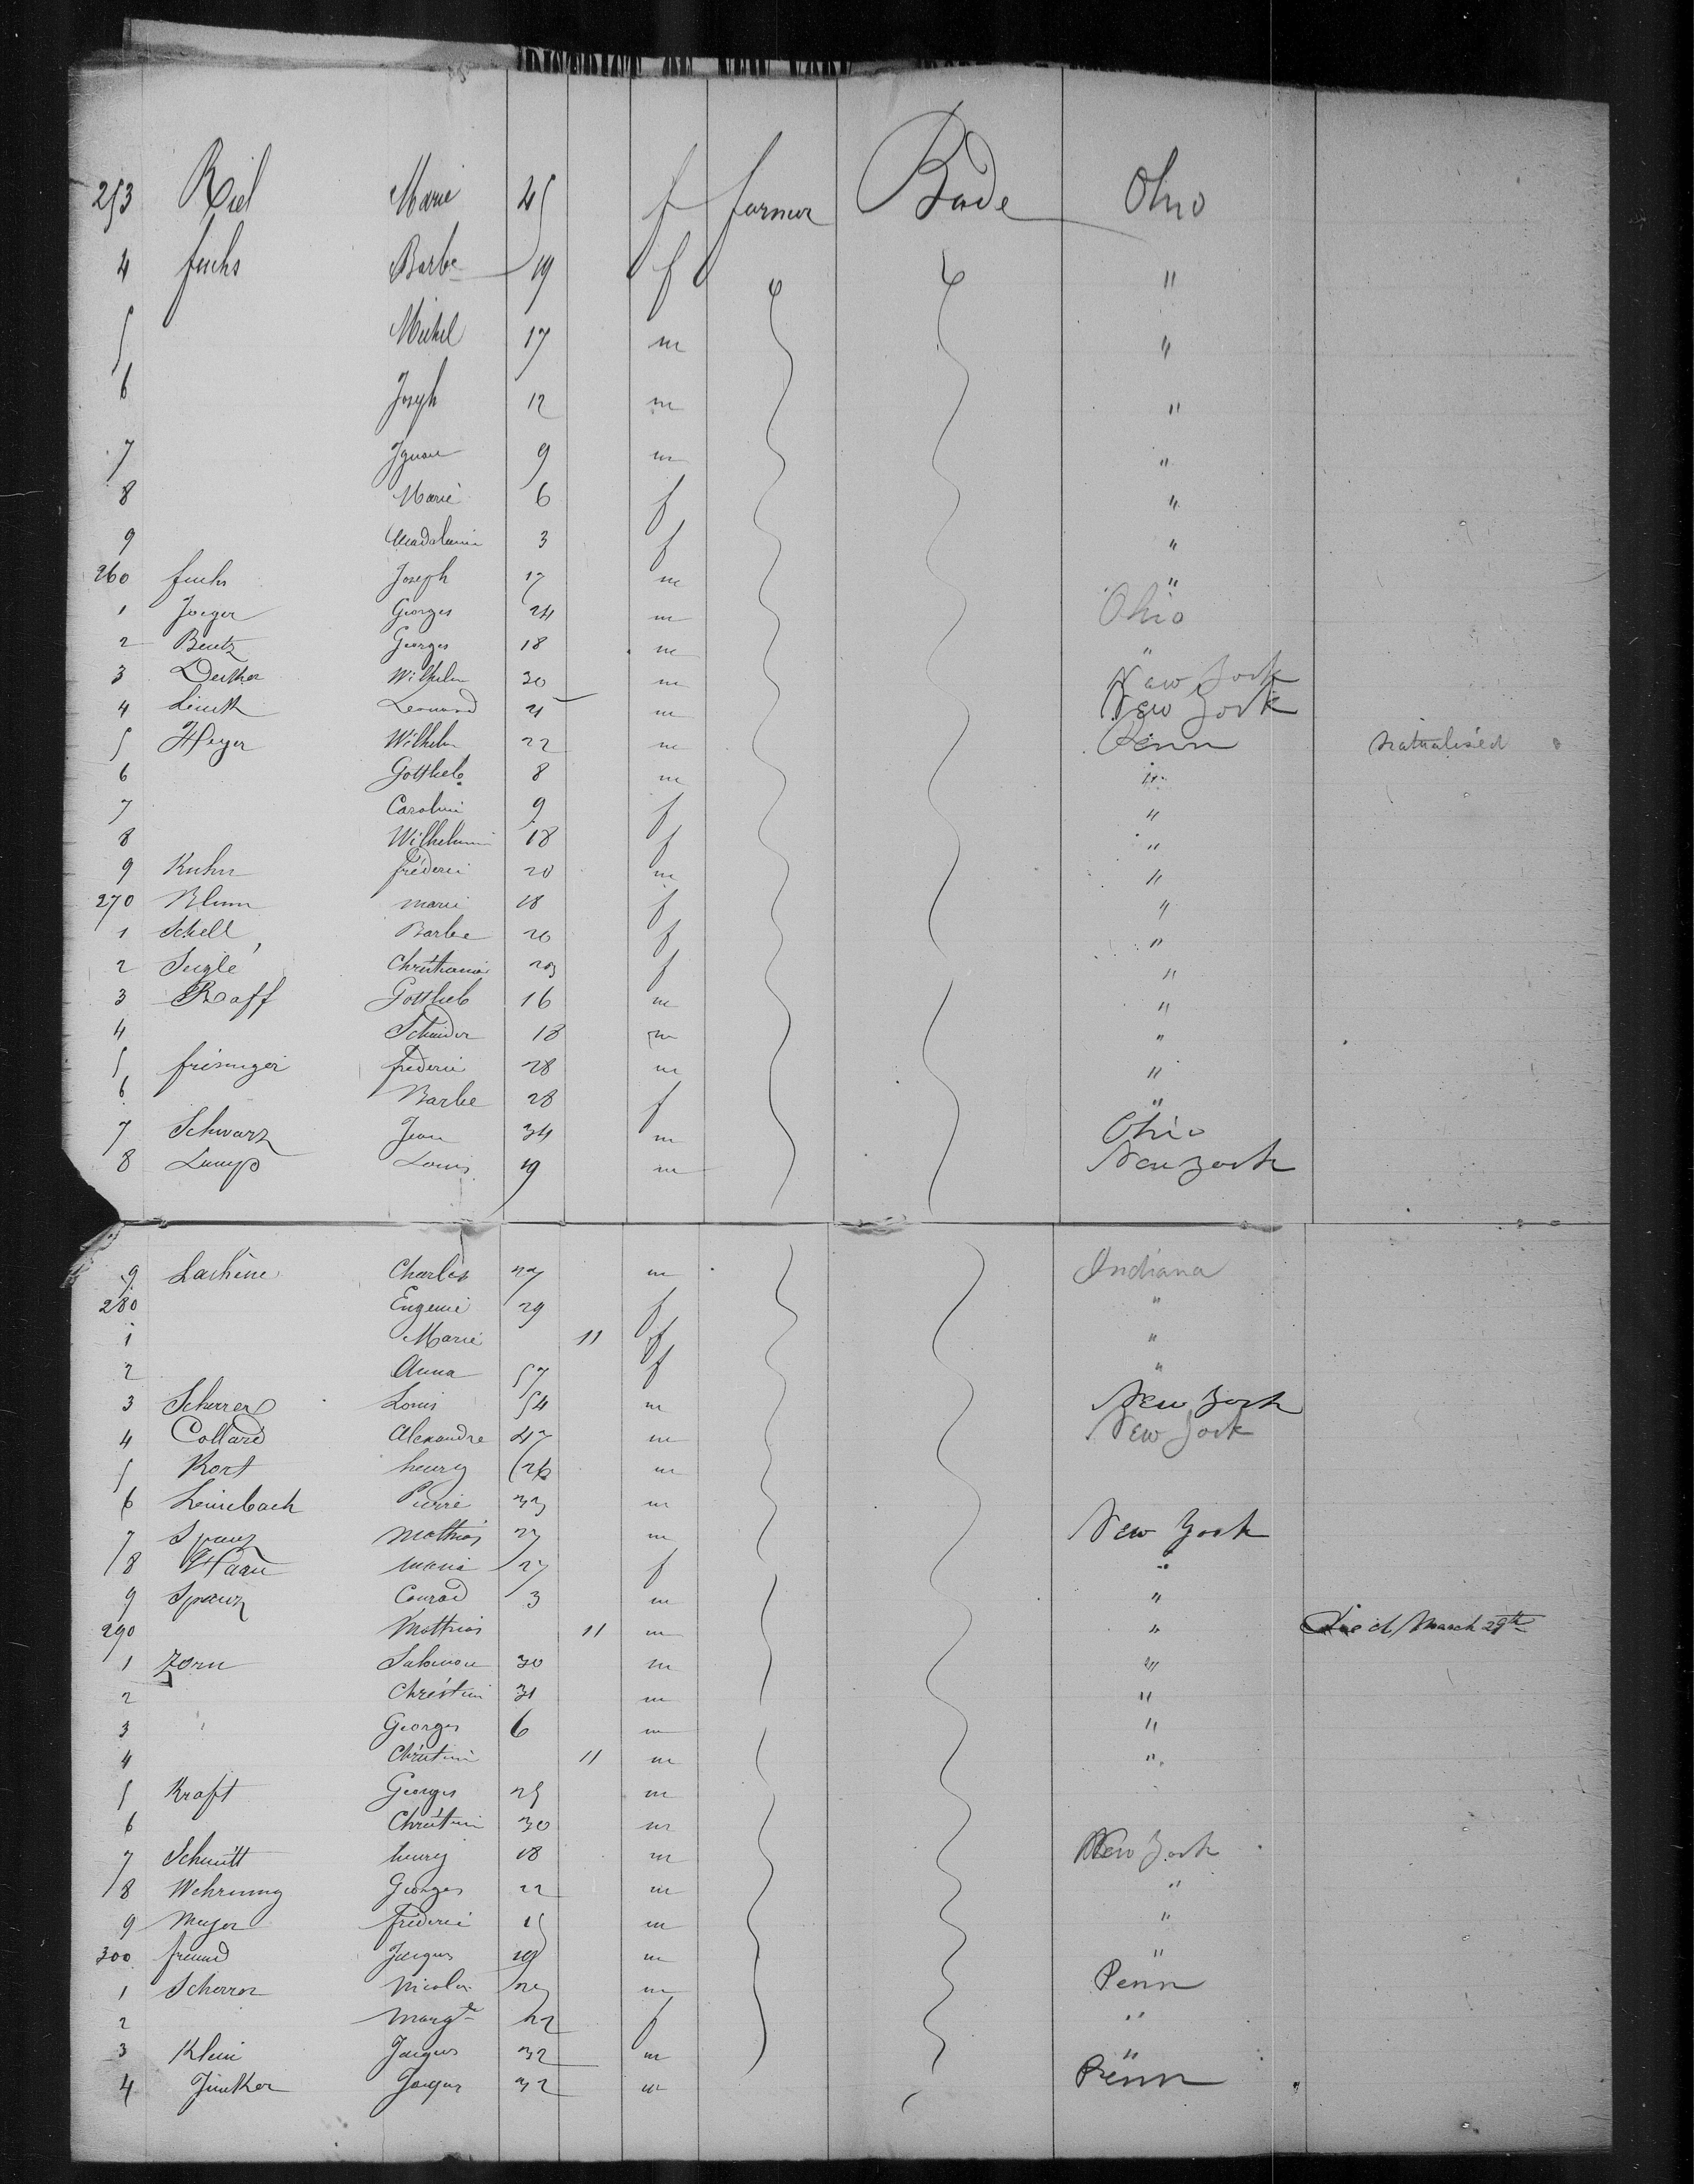 DISTRICT OF NEW YORK
253 Riel Marie 45 f farmer Bade Ohio
4 fuchs Barbe 19 f "
5 Michel 17 m "
6 Joseph 12 m "
7 Ignace 9 m "
8 Marie 6 f "
9 Madelaine 3 f "
260 fuchs Joseph 17 m "
1 Jaeger Georges 24 m Ohio
2 Beutz Georges 18 m "
3 Decker Wilhelm 30 m New York
4 Leonard 21 m New York
5 Heyer Wilhelm 22 m Penn natualised
6 Gottlieb 8 m "
7 Carolin 9 f "
8 Wilhelmin 18 f "
9 Kuhn fréderic 20 m "
270 Blum marie 18 f "
1 Schell Barbe 20 f "
2 Seiglé Christiania 23 f "
3 Raff Gottlieb 16 m "
4 Schnider 18 m "
5 frisinger frederic 28 m "
6 Barbe 28 f "
7 Schwarz Jean 34 m Ohio
8 Lump Louis 19 m New York
9 Lachène Charles 27 m Indiana
280 Eugenie 29 f "
1 Marie 11 f "
2 Anna 57 f "
3 Scherrer Louis 54 m New York
4 Collard Alexandre 47 m New York
5 Kort henry 26 m
6 Leinebach Pierre 33 m
7 Spanz Mathias 27 m New York
8 Haan Maria 27 f "
9 Spanz Conrad 3 m "
290 Mathias 11 m " Died March 29th
1 Zorn Salomon 30 m "
2 Christin 31 m "
3 Georges 6 m "
4 Christin 11 m "
5 Kraft Georges 25 m
6 Christin 30 m
7 Schmitt henry 18 m New York
8 Wehrung Georges 22 m "
9 Meyer fréderic 15 m "
300 freund Jacques m "
1 Scherrer Nicolas m Penn
2 Margte 22 f "
3 Klein Jacques 32 m "
4 Junker Jacques 32 m Penn